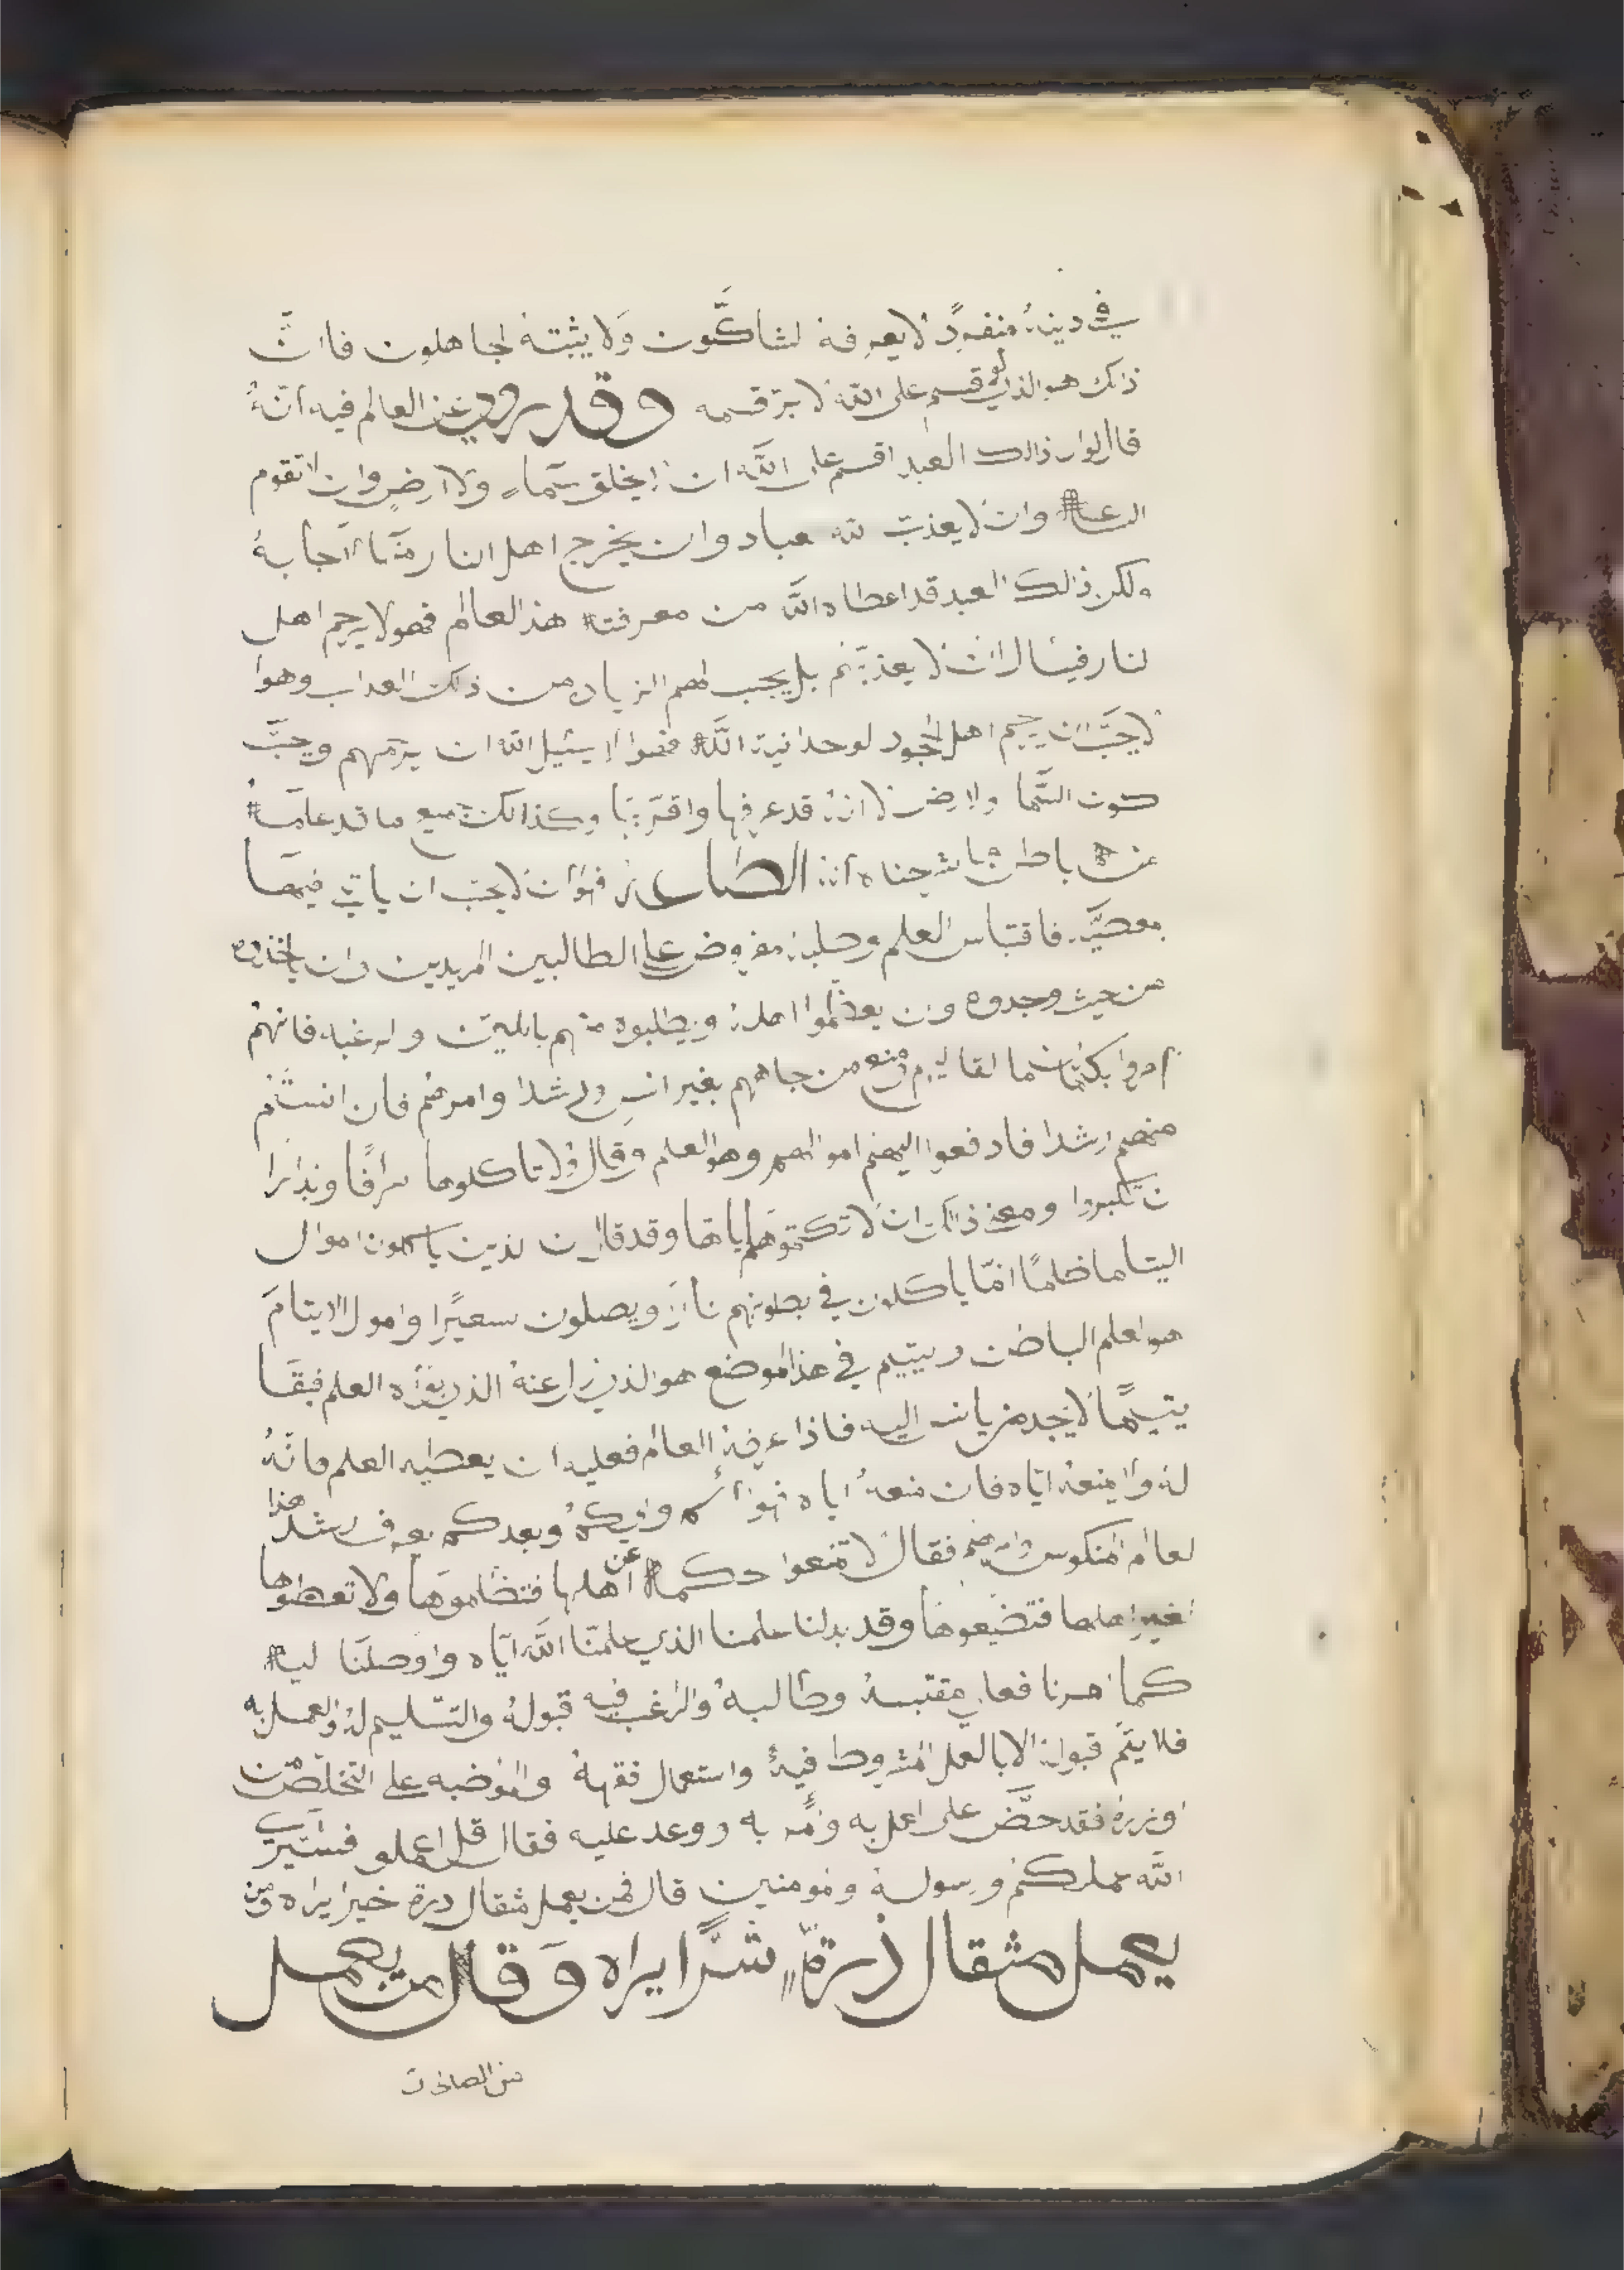 في دينه منفرد لا يعرفه لشاكّون ولا يثبته لجاهلون فانّ
ذلك هو الذي لو قسم على الله لابرّ قسمه وقد روي عن العالم فيه انّهُ
قال لوان ذالك العبد اقسم على الله ان لايخلق سّماء ولا ارض وان لاتقوم
الساعة وان لا يعذب لله عباد وان يخرج اهل النار منّها لاجابهُ
ولكن ذالك العبد قد اعطاه اللَّه من معرفته هذ العالم فهو لا يرحم اهل
لنار فيسال ان لا يعذبهم بل يحب لهم الزياده من ذلك العداب وهوا
لا يحبّ ان يرحم اهل الجود لوحدانية اللَّه فهوا لا يسئل الله ان يرحمهم ويحبّ
كون السَّما ولارض لانهُ قد عرفها واقرّ بها وكذالك جميع ما قد علمه
من باطن ما شرحناه انّ الطاعه فهو ان لا يحب ان ياتي فيها
بمعصيَّه فاقتباس العلم وطلبه مفروض على الطالبين المريدين وان ياخذوه
من حيث وجدوه وان يعظّموا اهله ويطلبوه منهم بالين والرغبه فانهم
امروا بكتمان ما لقا اليهم ومنع من جاهم بغير انس ولا رشدا وامرهم فان انستم
منهم رشدا فادفعوا اليهم اموالهم وهو العلم وقال ولا تاكلوها سرافًا وبدارا
ن تكبروا ومعنى ذالك ان لا تكتموهم اياها وقد قال ن لذين ياكلون اموال
اليتاما ضلمًا انمّا ياكلون في بطونهم نارً ويصلون سعيرًا وامول الايتامَ
هو اعلم الباطن وليتيم في هذا الموضع هو الذي زل عنهُ الذي يقراه العلم فبقا
يتيمًا لا يجد من ياتي اليه فاذا عرفه العالم فعليه ان يعطيه العلم فانهُ
له ولا يمنعهُ ايّاه فان منعهُ اياه
لعالم المنكوس وامرهم فقال لا تمنعوا حكمة عن اهلها فتضلموها ولا تعطوها
لغير اهلها فتضيّعوها وقد بدلنا علمنا الذي علمنّا اللَّه ايّاه واوصلنا ليه
كما امرنا فعلى مقتبسهُ وطالبهُ والراغب فيه قبولهُ والتسليم لهُ والعمل به
فلا يتم قبوله الا بالعمل المشروط فيهُ واستعمال فقههُ والموضبه على التخلص من
اوزره فقد حضَّ على اعمل به وامر به ووعد عليه فقال قل اعملو فسيرى
اللَّه عملكم ورسوله ومومنين قال فمن يعمل مثقال درة خيرا يراه ومن
يعمل مثقال ذرةٍ شرًّا يراه وَقال من يعمل
من الصالحات